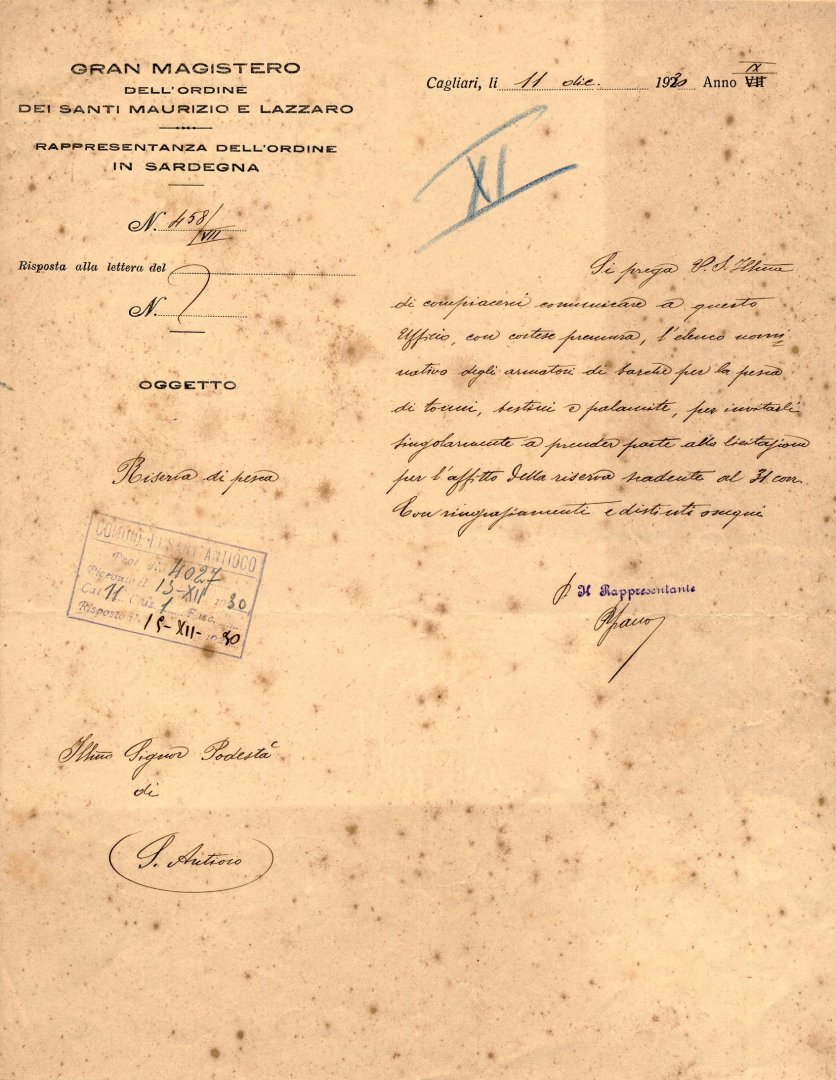 GRAN MAGISTERO
DELL'ORDINE
DEI SANTI MAURIZIO E LAZZARO
RAPPRESENTANZA DELL'ORDINE
IN SARDEGNA
N. 458/VII
Risposta alla lettera del
N.
OGGETTO
Riserva di pesca
Cagliari, li 11 dic. 1930 Anno IX VII
XI
Si prega V. S. Illma
di compiacersi comunicare a questo
Ufficio, con cortese premura, l'elenco nomi-
nativo degli armatori di barche per la pesca
di tonni, bestini e palamite, per invitarli
singolarmente a prender parte alla licitazione
per l'affitto della riserva scadente al 31 corr.
Con ringraziamenti e distinti ossequi
p. Il Rappresentante
COMUNE DI SANT'ANTIOCO
Prot. N. 4027
Ricevuto il 13-XII 1930
Cat. 11 Clas. 1 Fasc.
Risposto il 15-XII-1930
Illmo Signor Podestà
di
S. Antioco